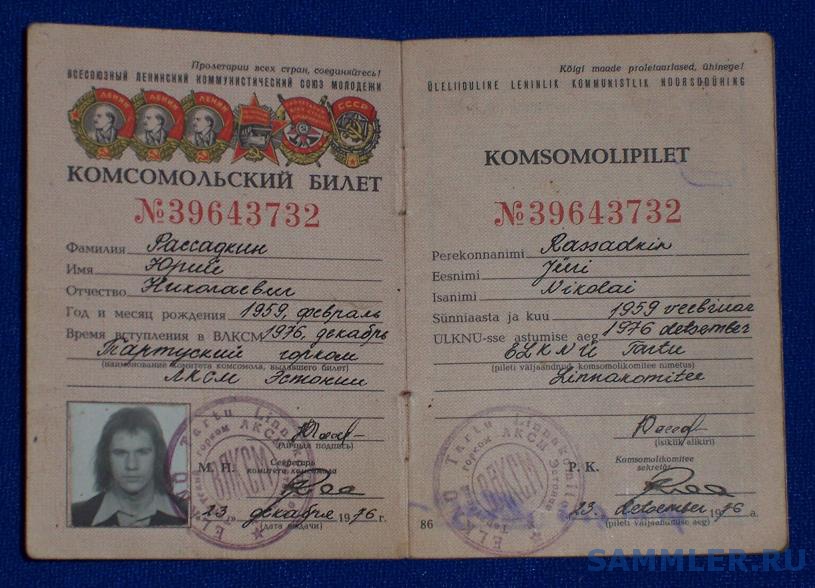 Пролетарии всех стран, соединяйтесь!
ВСЕСОЮЗНЫЙ ЛЕНИНСКИЙ КОММУНИСТИЧЕСКИЙ СОЮЗ МОЛОДЕЖИ
ЛЕНИН ЛЕНИН ЛЕНИН СССР
КОМСОМОЛЬСКИЙ БИЛЕТ
№39643732
Фамилия Рассадкин
Имя Юрий
Отчество Николаевич
Год и месяц рождения 1959, февраль
Время вступления в ВЛКСМ 1976, декабрь
Тартуский горком
(наименование комитета комсомола, выдавшего билет)
ЛКСМ Эстонии
(личная подпись)
М. П. Секретарь
комитета комсомола
23 декабря 1976 г.
(дата выдачи)
ELKNÜ Tartu Linnakomitee
ВЛКСМ
Kõigi maade proletaarlased, ühinege!
ÜLELIIDULINE LENINLIK KOMMUNISTLIK NOORSOOÜHING
KOMSOMOLIPILET
№39643732
Perekonnanimi Rassadkin
Eesnimi Jüri
Isanimi Nikolai
Sünniaasta ja kuu 1959 veebruar
ÜLKNÜ-sse astumise aeg 1976 detsember
ELKNÜ Tartu
(pileti väljaandnud komsomolikomitee nimetus)
Linnakomitee
(isiklik allkiri)
R. K. Komsomolikomitee
sekretär
23. detsember 1976 a.
(pileti väljaandmise aeg)
86
ELKNÜ Tartu Linnakomitee
ВЛКСМ
SAMMLER.RU